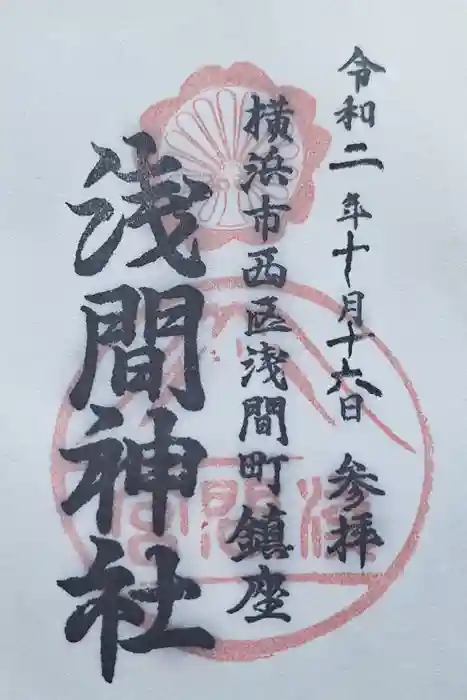 令和二年十月十六日 参拝
横浜市西区浅間町鎮座
浅間神社
浅間宮